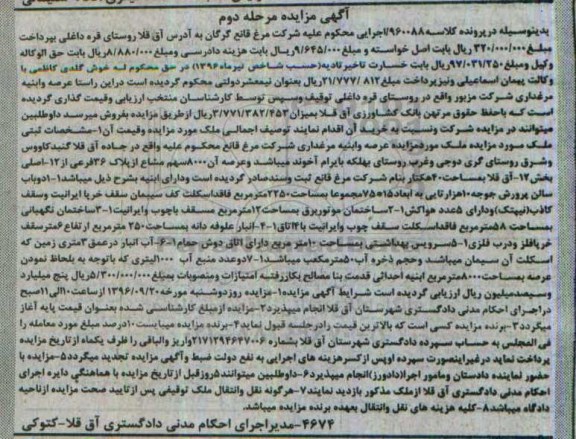 آگهی مزایده مرحله دوم
بدینوسیله درپرونده کلاسه ۹۶۰۰۸۸/اجرایی محکوم علیه شرکت مرغ قانع گرگان به آدرس آق قلا روستای قره داغلی بپرداخت
مبلغ ۳۲۰/۰۰۰/۰۰۰ ریال بابت اصل خواسته و مبلغ ۹/۶۴۵/۰۰۰ریال بابت هزینه دادرسی ومبلغ ۸/۸۸۰/۰۰۰ریال بابت حق الوکاله
وکیل ومبلغ ۹۷/۰۳۱/۲۵۰ریال بابت خسارت تاخیرتادیه(حسب شاخص تیرماه۱۳۹۶) در حق محکوم له خوش گلدی کاظمی با
وکالت پیمان اسماعیلی ونیزپرداخت مبلغ ۲۱/۷۷۷/۸۱۲ریال بعنوان نیمعشردولتی محکوم گردیده است دراین راستا عرصه وابنیه
مرغداری شرکت مزبور واقع در روستای قره داغلی توقیف وسپس توسط کارشناسان منتخب ارزیابی وقیمت گذاری گردیده
است که باحفظ حقوق مرتهن بانک کشاورزی آق قلا بمیزان۳/۷۷۱/۳۸۲/۴۵۳ریال ازطریق مزایده بفروش میرسد داوطلبین
میتوانند در مزایده شرکت ونسبت به خرید آن اقدام نمایند توصیف اجمالی ملک مورد مزایده وقیمت آن۱-مشخصات ثبتی
ملک مورد مزایده ملک موردمزایده عرصه وابنیه مرغداری شرکت مرغ قانع محکوم علیه واقع در جاده آق قلا گنبدکاووس
وشرق روستای گری دوجی وغرب روستای بهلکه بایرام آخوند میباشد وعرصه آن۸۰۰۰سهم مشاع ازپلاک ۳۶فرعی از۱۲-اصلی
بخش۱۲-آق قلا بمساحت۴۰هکتار بنام شرکت مرغ قانع ثبت وسندصادر گردیده است ودارای ابنیه بشرح ذیل میباشد۱-۱دوباب
سالن پرورش جوجه۱۰هزارتایی به ابعاد۱۵*۷۵مجموعا بمساحت۲۲۵۰مترمربع فاقداسکلت کف سیمان سقف خرپا ایرانیت وسقف
کاذب(نیبتک)ودارای ۵عدد هواکش۱-۲ساختمان موتوربرق بمساحت۱۲مترمربع مسقف باچوب وایرانیت۱-۳ساختمان نگهبانی
بمساحت ۵۸مترمربع فاقداسکلت سقف چوب وایرانیت با۲اتاق۱-۴انبار علوفه دانه بمساحت۲۵۰ مترمربع ارتفاع۶مترسقف
خرپافلز ودرب فلزی۱-۵سرویس بهداشتی بمساحت ۱۰متر مربع دارای اتاق دوش حمام۱-۶-آب انبار درعمق۳متری زمین که
اسکلت آن سیمان میباشد وحجم ذخره آب۵۰مترمکعب میباشد۱-۷دوعدد منبع آب ۱۰۰۰لیتری که باتوجه به بلحاظ نمودن
عرصه بمساحت۸۰۰۰مترمربع ابنیه احداثی قدمت بنا مصالح بکاررفته امتیازات ومنصوبات بمبلغ ۵/۳۰۰/۰۰۰/۰۰۰ریال پنج میلیارد
وسیصدمیلیون ریال ارزیابی گردیده است شرایط آگهی مزایده۱-مزایده روزدوشنبه مورخه۱۳۹۶/۰۹/۲۰ازساعت۱۰الی۱۱صبح
دراجرای احکام مدنی دادگستری شهرستان آق قلا انجام میپذیرد۲-مزایده از مبلغ کارشناسی شده بعنوان قیمت پایه آغاز
میگردد۳-برنده مزایده کسی است که بالاترین قیمت رادرجلسه قبول نماید۴-برنده مزایده میبایست۱۰درصد مبلغ مورد معامله را
فی المجلس به حساب سپرده دادگستری شهرستان آق قلا بشماره ۲۱۷۱۲۹۴۶۴۷۰۰۶واریز والباقی را ظرف یکماه ازتاریخ مزایده
پرداخت نماید درغیراینصورت سپرده اوپس ازکسرهزینه های اجرایی به نفع دولت ضبط وآگهی مزایده تجدید میگردد۵-مزایده با
حضور نماینده دادستان ومامور اجرا(دادورز)انجام میپذیرد۶-داوطلبین میتوانند۵روزقبل ازتاریخ مزایده با هماهنگی دایره اجرای
احکام مدنی دادگستری آق قلا ازملک مذکور بازدید نمایند۷-هرگونه نقل وانتقال ملک توقیفی پس ازتایید صحت مزایده ازناحیه
دادگاه میباشد۸-کلیه هزینه های نقل وانتقال بعهده برنده مزایده میباشد.
۴۶۷۴-مدیراجرای احکام مدنی دادگستری آق قلا-کتوکی